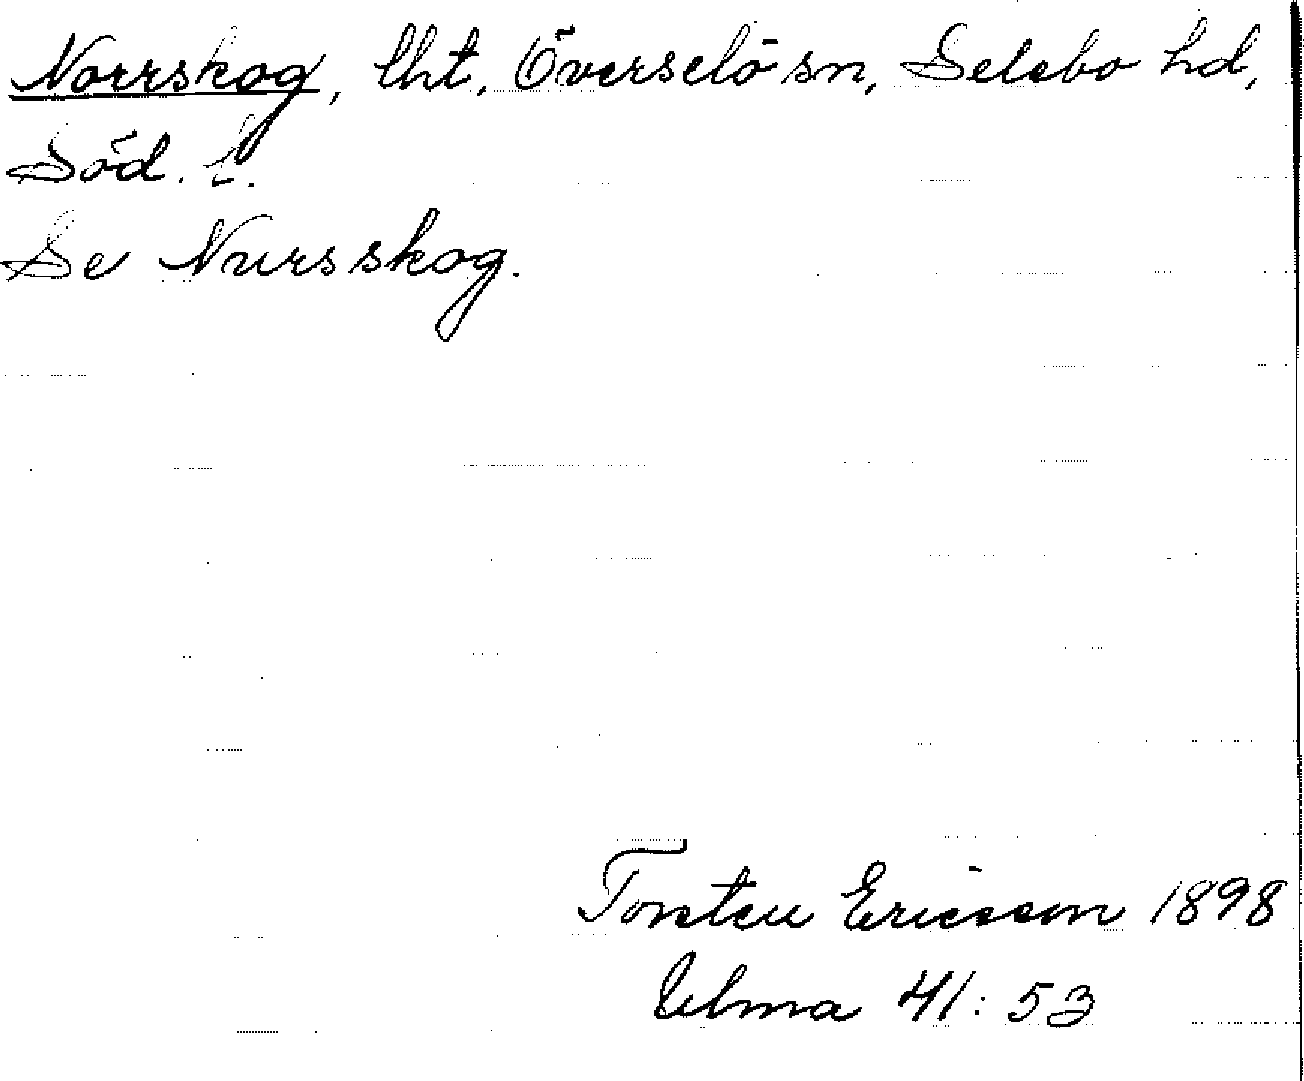 Norrskog, lht, Överselö sn, Selebo hd,
Söd. l.
Se Nursskog.
Torsten Ericsson 1898
Ulma 41:53